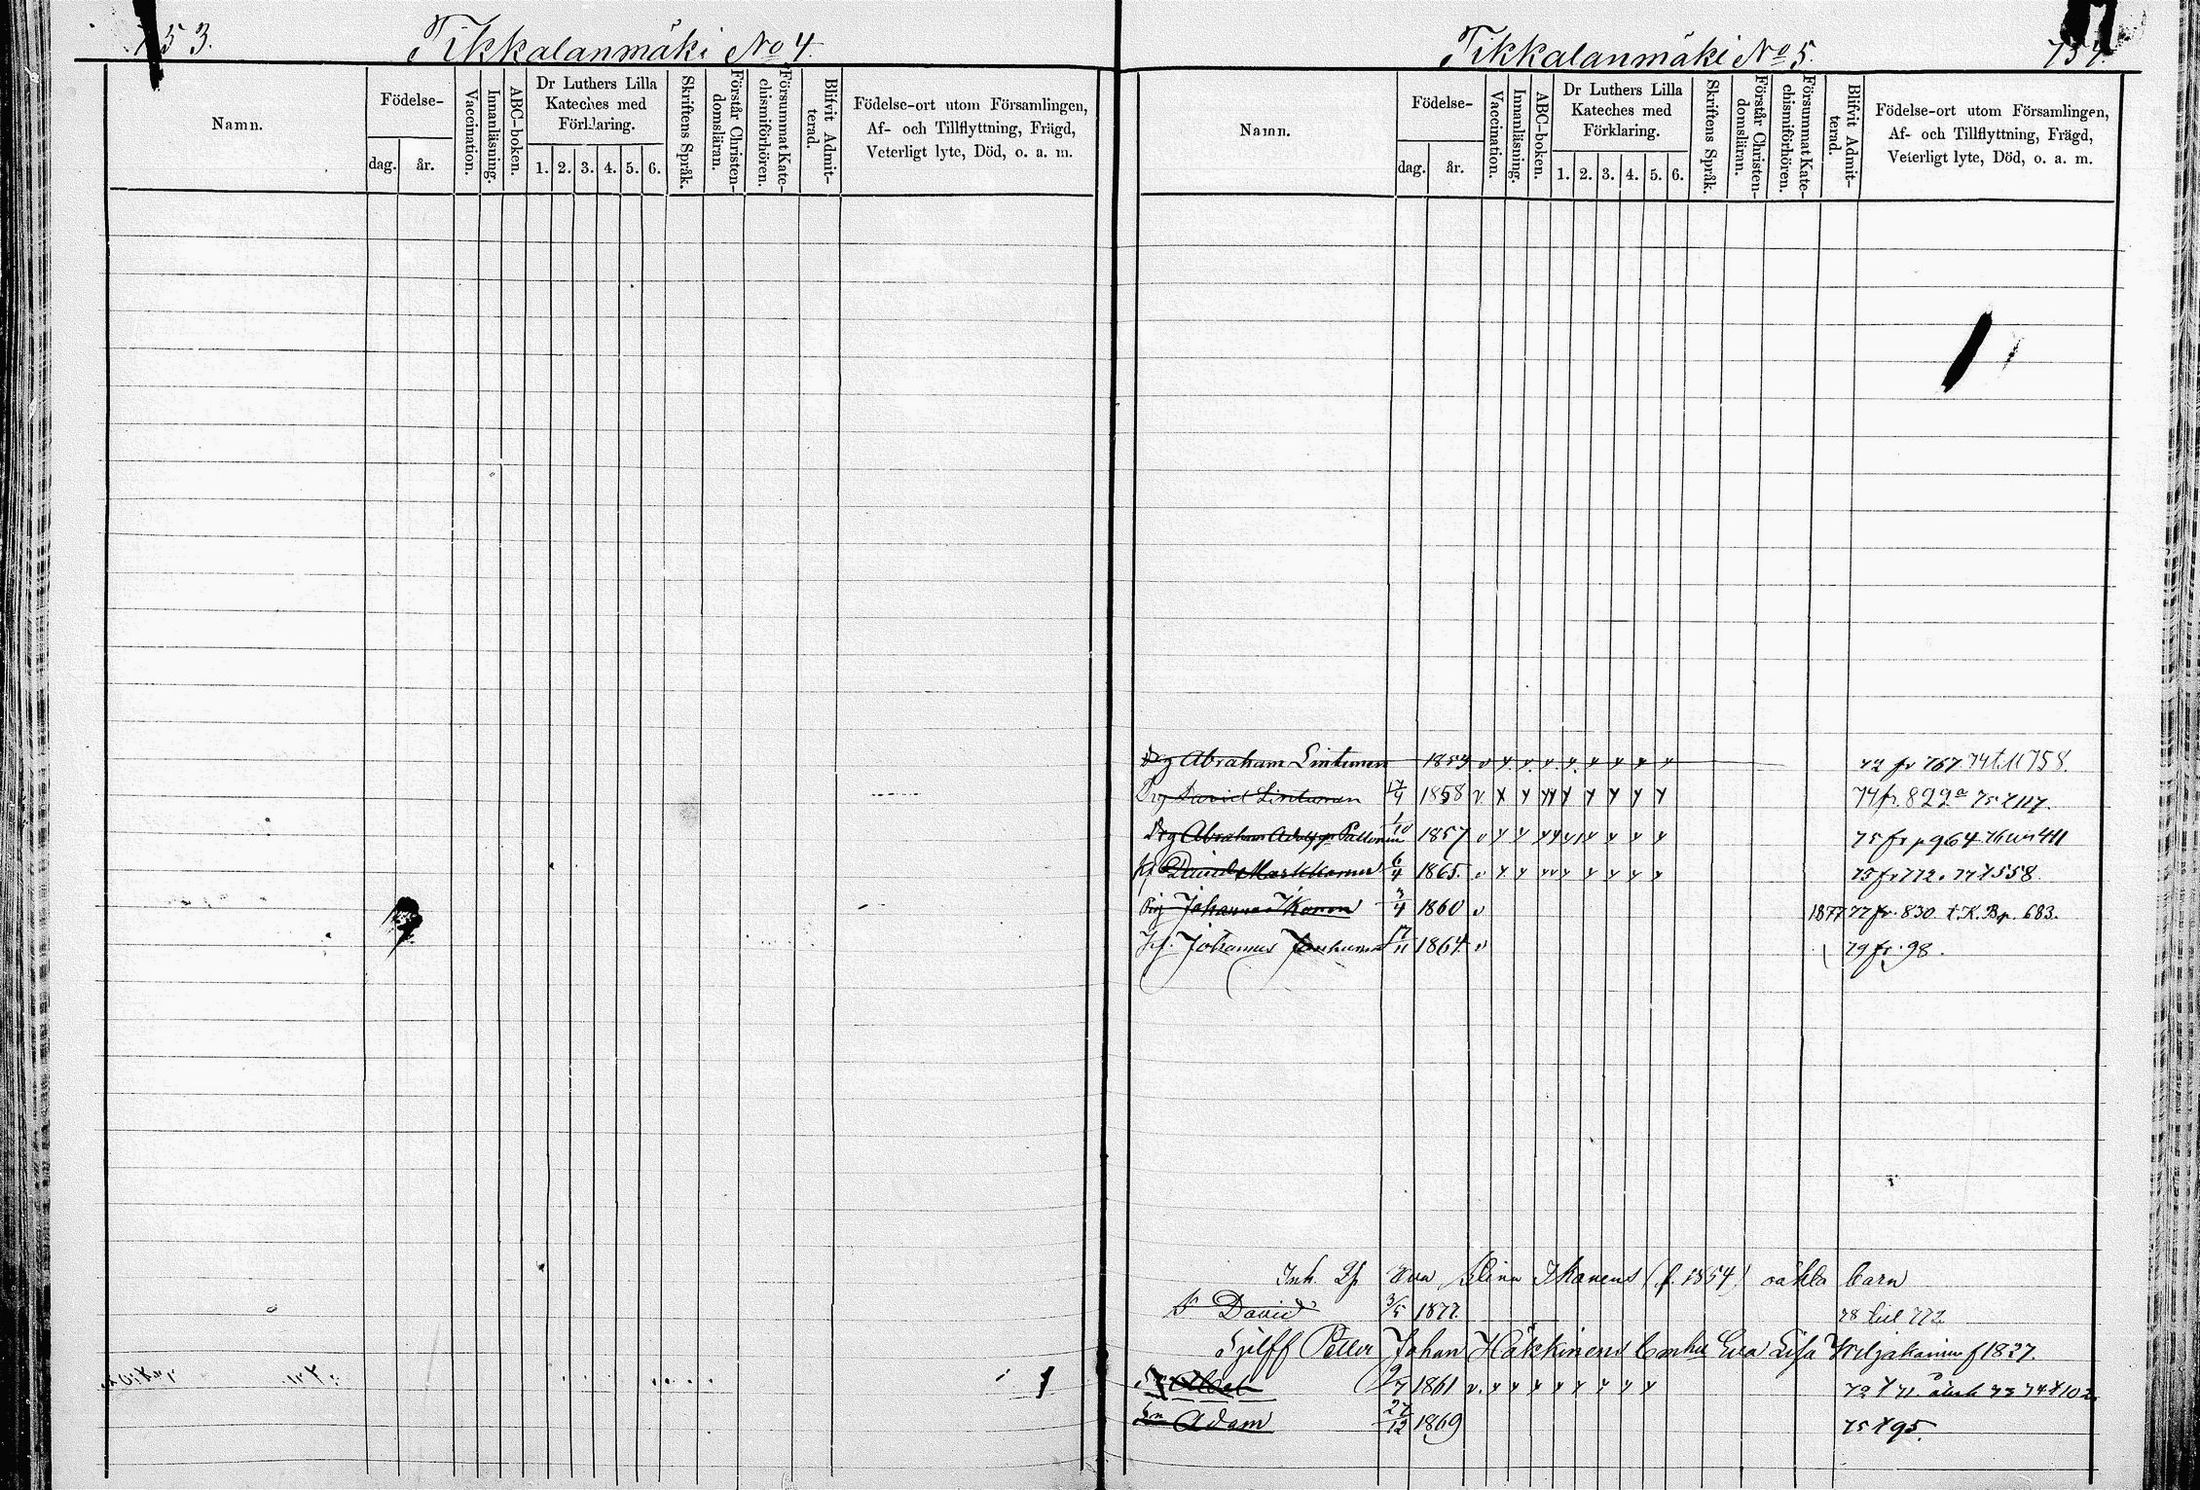 753.
Tikkalanmäki No 4.
Namn.
Födelse-
dag.
år.
Vaccination.
Innanläsning.
ABC-boken.
Dr Luthers Lilla
Kateches med
Förklaring.
1. 2. 3. 4. 5. 6.
Skriftens Språk.
Förstår Christen-
domsläran.
Försummat Kate-
chismiförhören.
Blifvit Admit-
terad.
Födelse-ort utom Församlingen,
Af- och Tillflyttning, Frägd,
Veterligt lyte, Död, o. a. m.
Tikkalanmäki No 5.
754.
Namn.
Födelse-
dag.
år.
Vaccination.
Innanläsning.
ABC-boken.
Dr Luthers Lilla
Kateches med
Förklaring.
1. 2. 3. 4. 5. 6.
Skriftens Språk.
Förstår Christen-
domsläran.
Försummat Kate-
chismiförhören.
Blifvit Admit-
terad.
Födelse-ort utom Församlingen,
Af- och Tillflyttning, Frägd,
Veterligt lyte, Död, o. a. m.
Drg Abraham Lintunen 1854 v 72 fr 767 74 t 758.
Drg David Lintunen 1858 v 74 fr. 822a
Drg Abraham Adolf 1857 v 75 fr p 964
David Markkanen 6/4 1865. v 75 fr 772. 77 t 558
Drg Johannes Ikonen 3/4 1860 v 1877 77 fr. 830 t. K. Bp. 683.
Johannes 17/11 1864 v 79 fr. 98.
Inh. Eva Elina Ikonens (f. 1854) oäkta barn
S David 3/5 1877. 78 till 772
Sjelff Petter Johan Häkkinens Enka Eva Lisa Wiljakainen f 1827.
1861 v.
Sn Adam 27/12 1869 75 t 95.